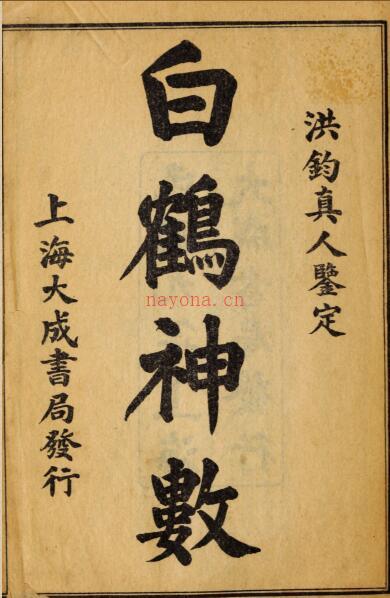 洪鈞真人鑒定
白鶴神數
上海大成書局發行
nayona.cn